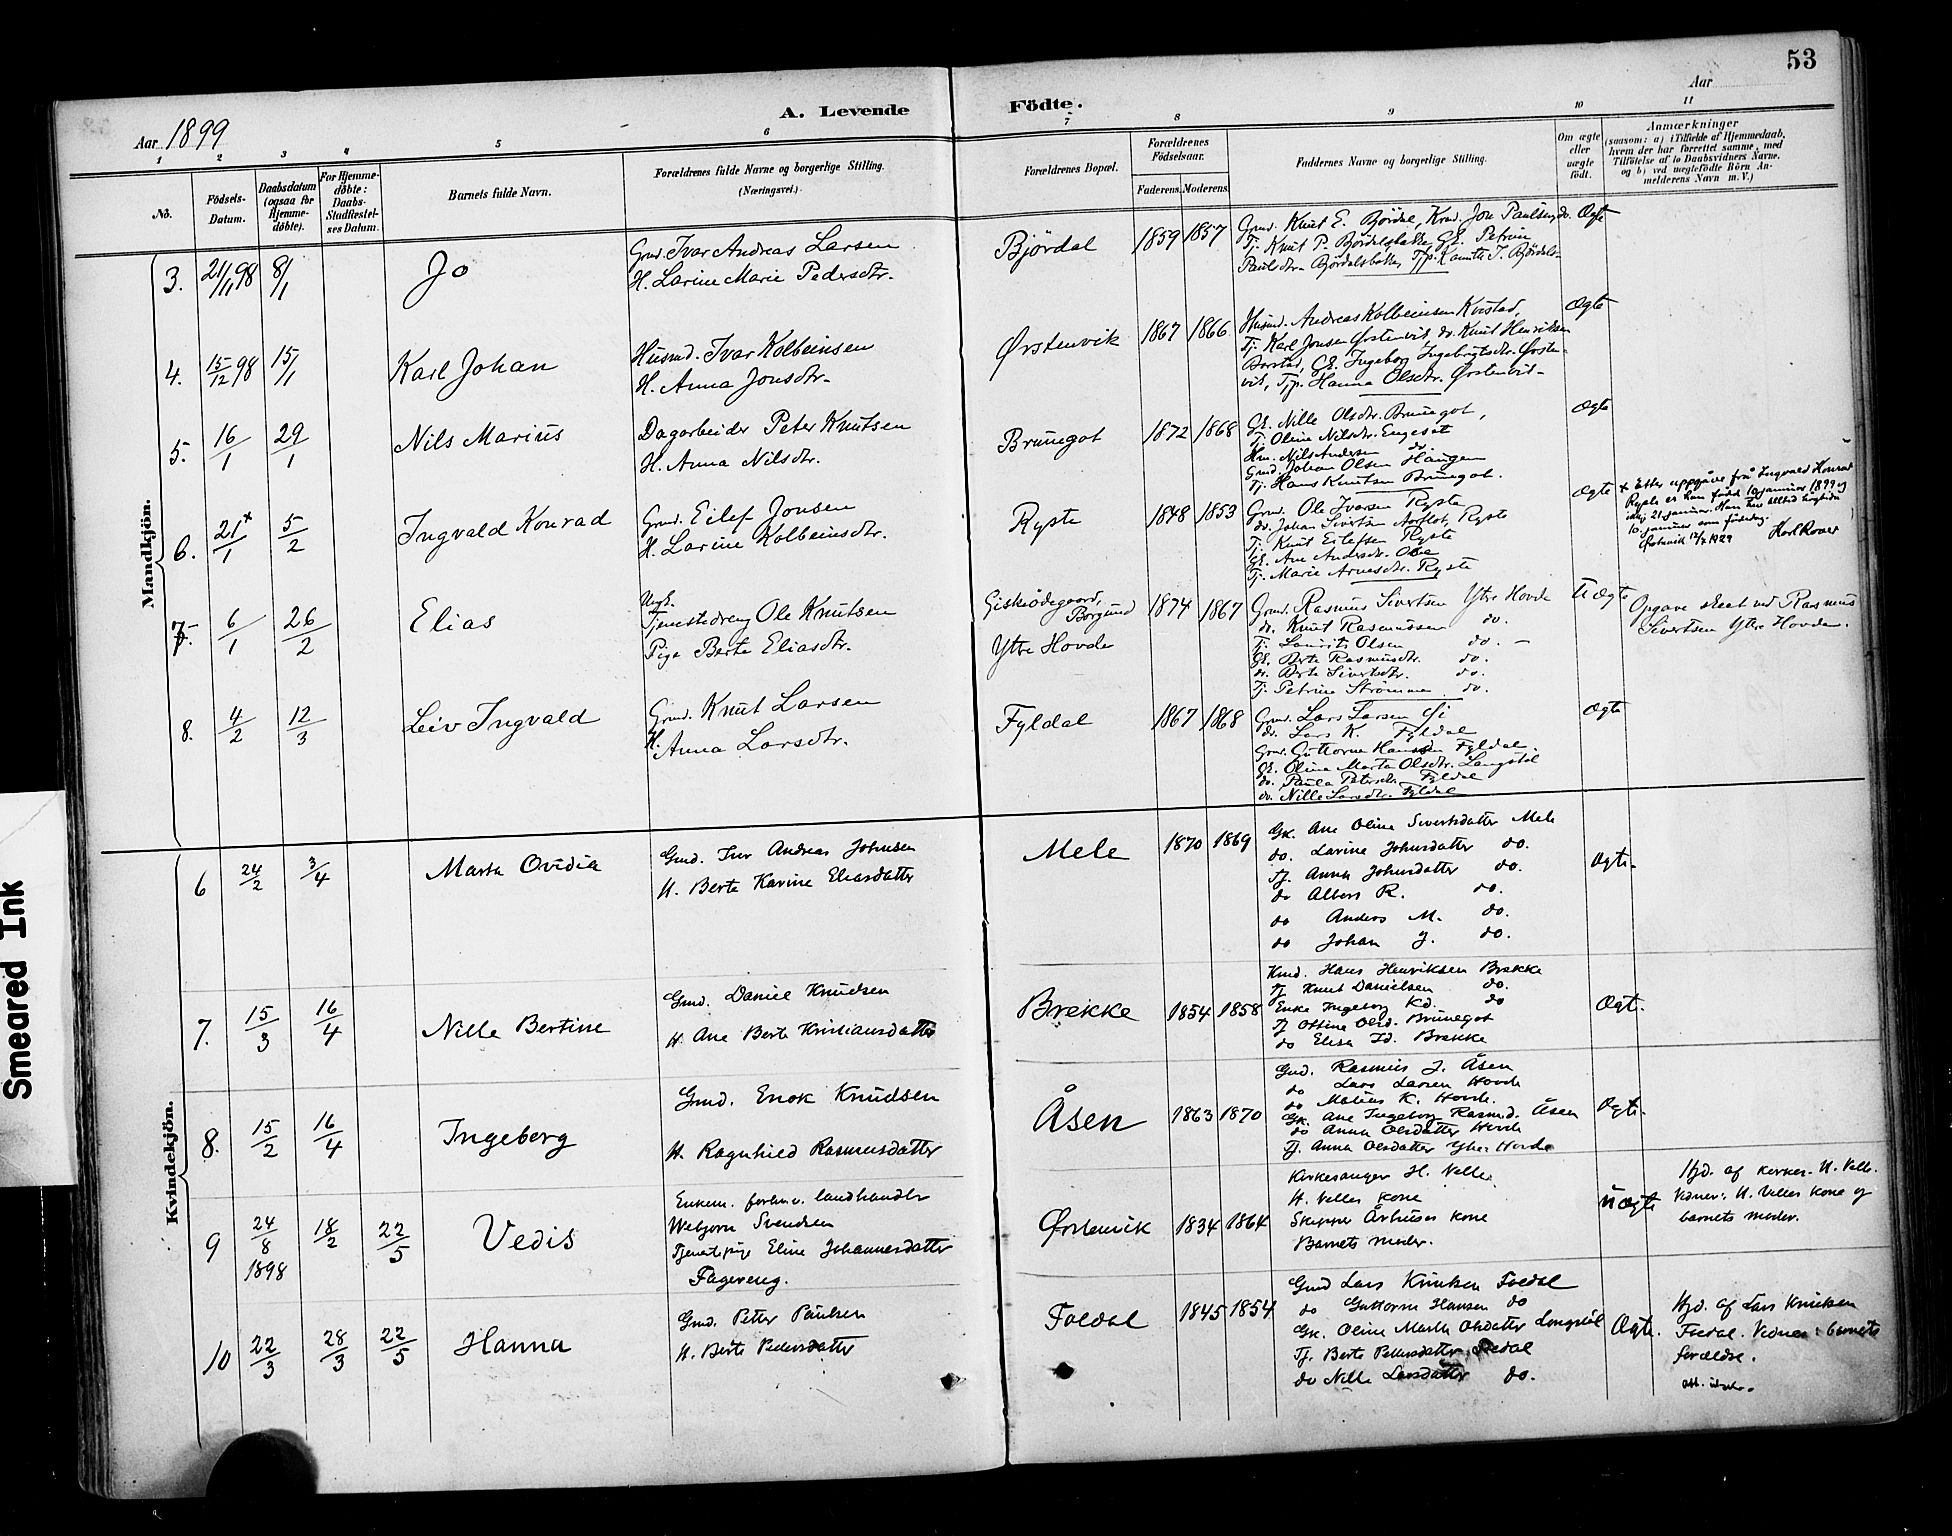 53
A. Levende Födte.
Aar 1899
Aar
1 2 3 4 5 6 7 8 9 10 11
No.
Födsels-
Datum.
Daabsdatum
(ogsaa for
Hjemme-
døbte).
For Hjemme-
døbte:
Daabs-
Stadfæstel-
ses Datum.
Barnets fulde Navn.
Forældrenes fulde Navne og borgerlige Stilling.
(Næringsvei).
Forældrenes Bopæl.
Forældrenes
Födselsaar.
Faderens. Moderens.
Faddernes Navne og borgerlige Stilling.
Om ægte
eller
uægte
født.
Anmærkninger
(saasom: a) i Tilfælde af Hjemmedaab,
hvem der har forrettet samme, med
Tilföielse af to Daabsvidners Navne,
og b) ved uægtefödte Börn An-
melderens Navn m. V.)
Mandkjön.
3. 21/11 98 8/1 Jo
Grmd. Ivar Andreas Larsen
H. Larine Marie Pedersdtr.
Björdal 1859 1857
Grmd. Knut E. Bjørdal, Krmd. Jon Paulsen do.
Tj. Knut P. Björdalsbakke, Gk. Petrine
Paulsdtr. Björdalsbakke, Tjp. J. Björdal
Ægte
4. 15/12 98 15/1 Karl Johan
Husmd. Ivar Kolbeinsen
H. Anna Jonsdtr.
Ørstenvik 1867 1866
Husmd. Andreas Kolbeinsen Kvistad,
Tj. Karl Jonsen Ørstenvik, do. Knut Henriksen
Gk. Ingeborg Ingebrigtsdtr. Ørsten-
vik, Tjp. Hanna Olsdtr. Ørstenvik
Ægte
5. 16/1 29/1 Nils Marius
Dagarbeider Peter Knutsen
H. Anna Nilsdtr.
Brungot 1872 1868
Gk. Nille Olsdtr. Brungot,
Tj. Oline Nilsdtr. Engeset
Hm. Nils Andersen do
Grmd. Johan Olsen Haugen
Tj. Hans Knutsen Brungot.
Ægte
6. 21+/1 5/2 Ingvald Konrad
Grmd. Eilef Jonsen
H. Larine Kolbeinsdtr.
Ryste 1848 1853
Grmd. Ole Ivarsen Ryste
do. Johan Sivertsen Ryste
Tj. Knut Eilefsen Ryste
Gk. Ane Andersdtr.
Tj. Marie Arnesdtr. Ryste
Ægte
+ Etter uppgåve frå Ingvald Konrad
Ryste er han fødd 10 januar 1899 og
ikkj 21 januar. Han har alltid
10. januar som fødedag.
Ørstavik 12/7 1929 Karl Rover
7. 6/1 26/2 Elias
Ungk.
Tjenestedreng Ole Knutsen
Pige Berte Eliasdtr.
Giskeödegaard,
Borgund
Ytre Hovde
1874 1867
Grmd. Rasmus Sivertsen Ytre Hovde
do. Knut Rasmussen do.
Tj. Laurits Olsen do. -
Gk. Berte Rasmusdtr. do.
do. Berte Sivertsdtr. do.
Tj. Petrine Strömme do.
Uægte
Opgave skeet ved Rasmus
Sivertsen Ytre Hovde.
8. 4/2 12/3 Leiv Ingvald
Grmd. Knut Larsen
H. Anna Larsdtr.
Fyldal 1867 1868
Grmd. Lars Larsen
do. Lars K. Fyldal
Grmd. Guttorm Hansen Fyldal.
Gk. Oline Marta Olsdtr. Langstøl
do. Paula Petersdtr. Fyldal
do. Nille Larsdtr. Fyldal
Ægte
Kvindekjön.
6 24/2 3/4 Marta Ovidia
Gmd. Iver Andreas Johnsen
H. Berte Karine Eliasdatter
Mele 1870 1869
Gk. Ane Oline Sivertsdatter Mele
do. Larine Johnsdatter do.
Tj. Anna Johnsdatter do.
do Albert R. do.
do Anders M. do.
do Johan J. do.
Ægte.
7. 15/3 16/4 Nille Bertine
Gmd. Daniel Knudsen
H. Ane Berte Kristiansdatter
Brekke 1854 1858
Kmd. Hans Henriksen Brekke
Tj Knut Danielsen do.
Enke Ingeborg Kd. do
Tj Ottine Olsd. Brunegot
do Elisa Id. Brekke
Ægte.
8. 15/2 16/4 Ingeborg
Gmd. Enok Knudsen
H. Ragnhild Rasmusdatter
Åsen 1863 1870
Gmd. Rasmus J. Åsen
do Lars Larsen Hovde
do Matias K. Hovde.
Gk. Ane Ingeborg Rasmd. Åsen
do Anna Olsdatter Hovde
Tj. Anna Olsdatter Ytre Hovde
Ægte.
9 24/8 1898 18/2 22/5 Vedis
Enkem. forhv. landhandler
Webjørn Svendsen
Tjenestpige Eline Johannesdatter
Fagereng.
Ørstenvik 1834 1864
Kirkesanger H. Velle
H. Velles kone
Skipper Århuses kone
Barnets moder.
Uægte
Hjd. af kirkes. H. Velle.
Vidner: H. Velles kone og
barnets moder.
10 22/3 28/3 22/5 Hanna
Gmd. Petter Paulsen
H. Berte Pettersdatter
Foldal 1845 1854
Gmd Lars Knutsen Foldal
do Guttorm Hansen do
Gk. Oline Marte Olsdatter Langstöl
Tj. Berte Pettersdatter Foldal
do Nille Larsdatter do.
Ægte.
Hjd. af Lars Knutsen
Foldal. Vidner: barnets
forældre.
Smeared Ink